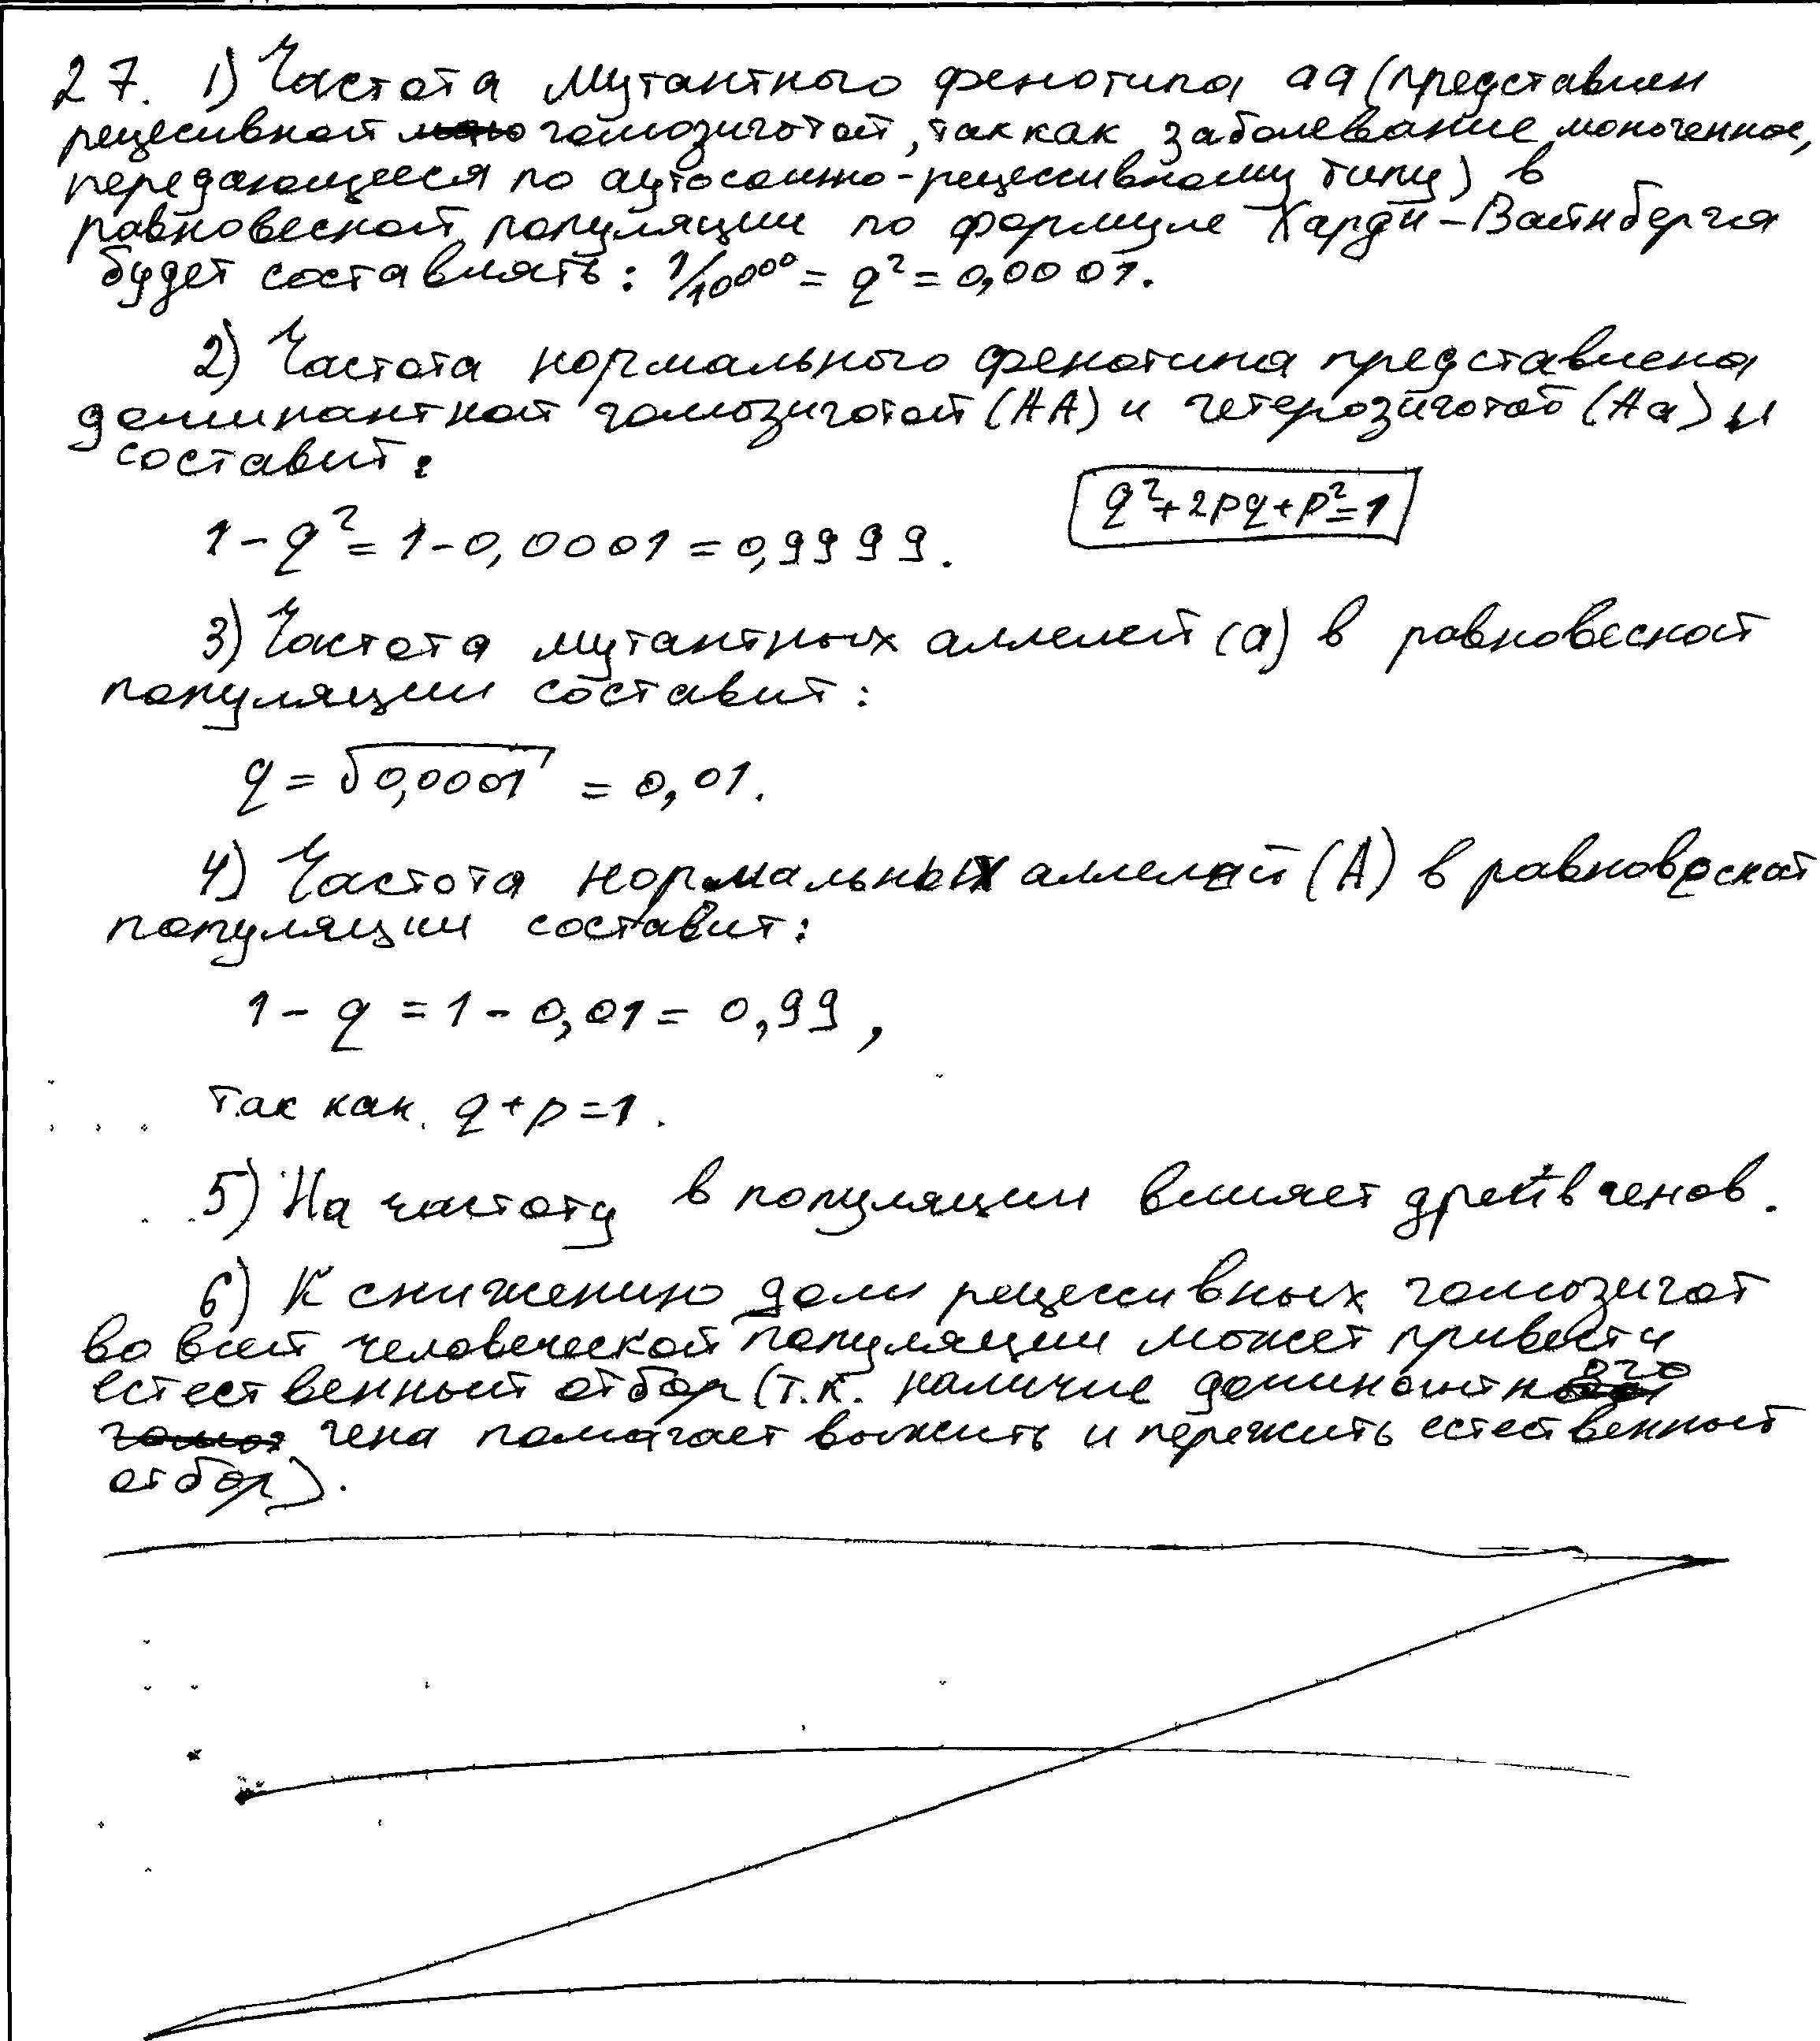 27. 1) Частота мутантного фенотипа aa (представлен
рецесивной гомозиготой, так как заболевание моногенное,
передающееся по аутосомно-рецессивному типу) в
равновесной популяции по формуле Харди-Вайнберга
будет составлять: 1/10000 = q² = 0,0001.
2) Частота нормального фенотипа представлена
доминантной гомозиготой (AA) и гетерозиготой (Aa) и
составит:
q² + 2pq + p² = 1
1 - q² = 1 - 0,0001 = 0,9999.
3) Частота мутантных аллелей (a) в равновесной
популяции составит:
q = √0,0001 = 0,01.
4) Частота нормальных аллелей (A) в равновесной
популяции составит:
1 - q = 1 - 0,01 = 0,99,
так как q + p = 1.
5) На частоту в популяции влияет дрейв генов.
6) К снижению доли рецессивных гомозигот
во всей человеческой популяции может привести
естественный отбор (т.к. наличие доминантного
гена помагает выжить и пережить естественный
отбор).